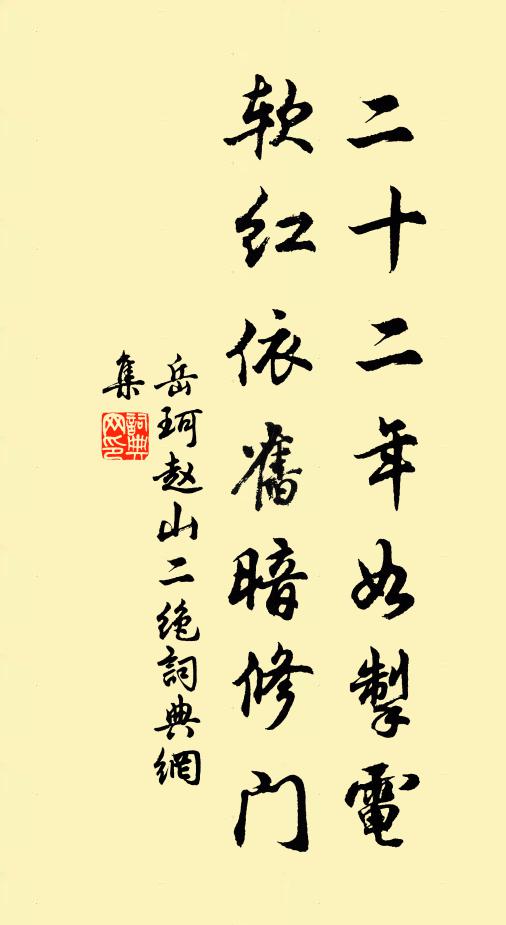 二十二年如掣電
软紅依舊暗修門
岳珂赵山二绝詞典網
集
詞典
网印